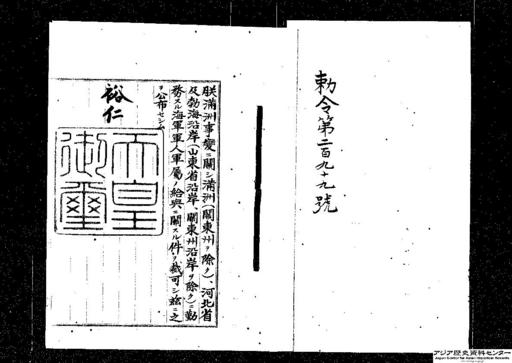 勅令第二百九十九號
朕満洲事變ニ關シ満洲(關東州ヲ除ク)、河北省
及勃海沿岸(山東省沿岸、關東州沿岸ヲ除ク)ニ勤
務スル海軍軍人軍屬ノ給與ニ關スル件ヲ裁可シ玆ニ之
ヲ公布セシム
裕仁
天皇
御璽
アジア歴史資料センター
Japan Center for Asian Historical Records